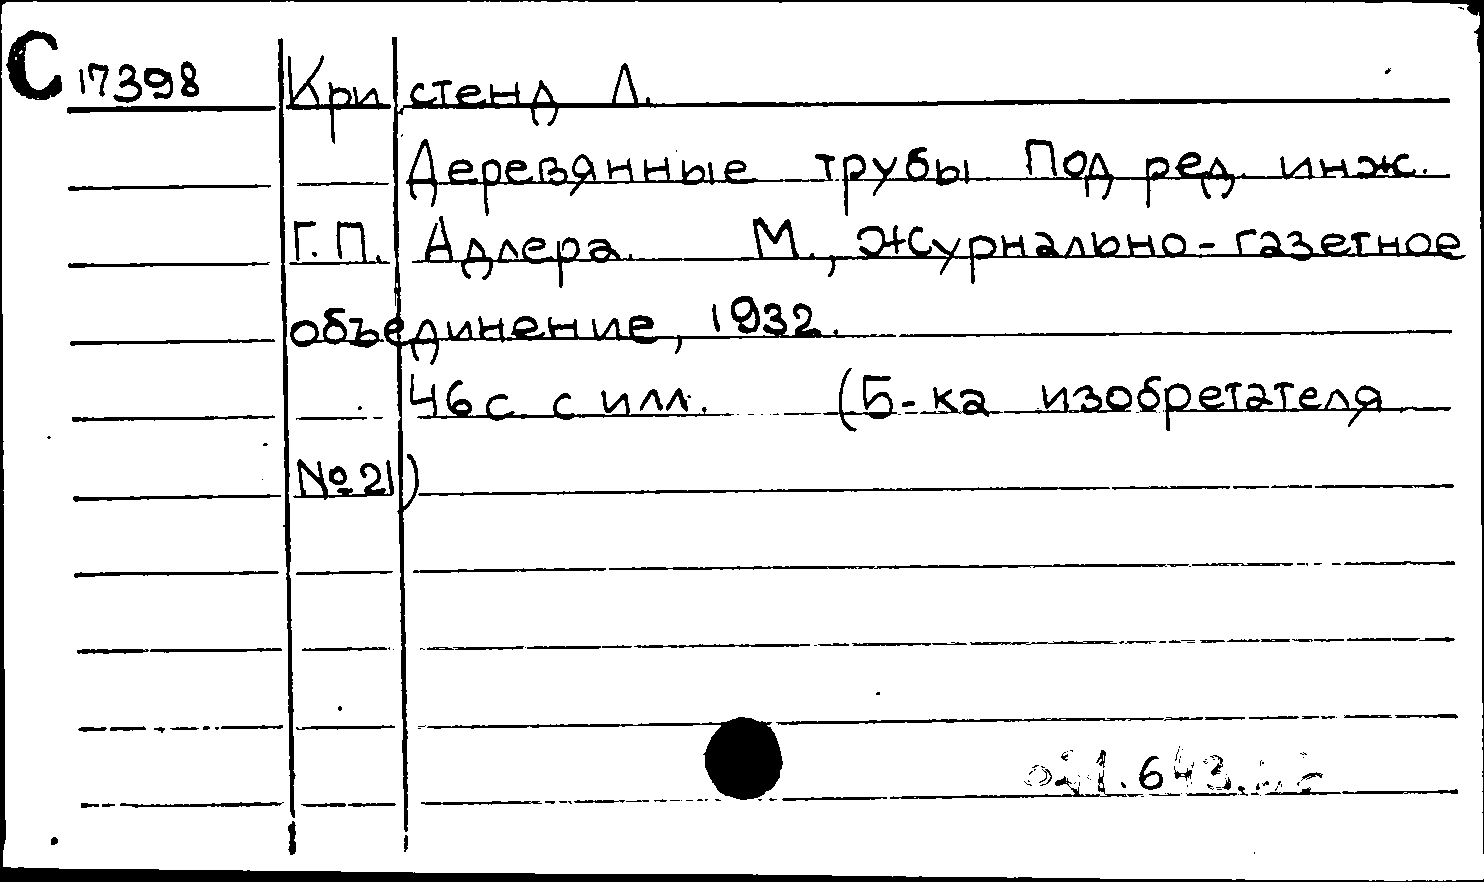 С 17398 Кристенд Л.
Деревянные трубы Под ред. инж.
Г.П. Адлера. М., Журнально-газетное
объединение, 1932.
46 с. с илл. (Б-ка изобретателя
№ 21)
643.